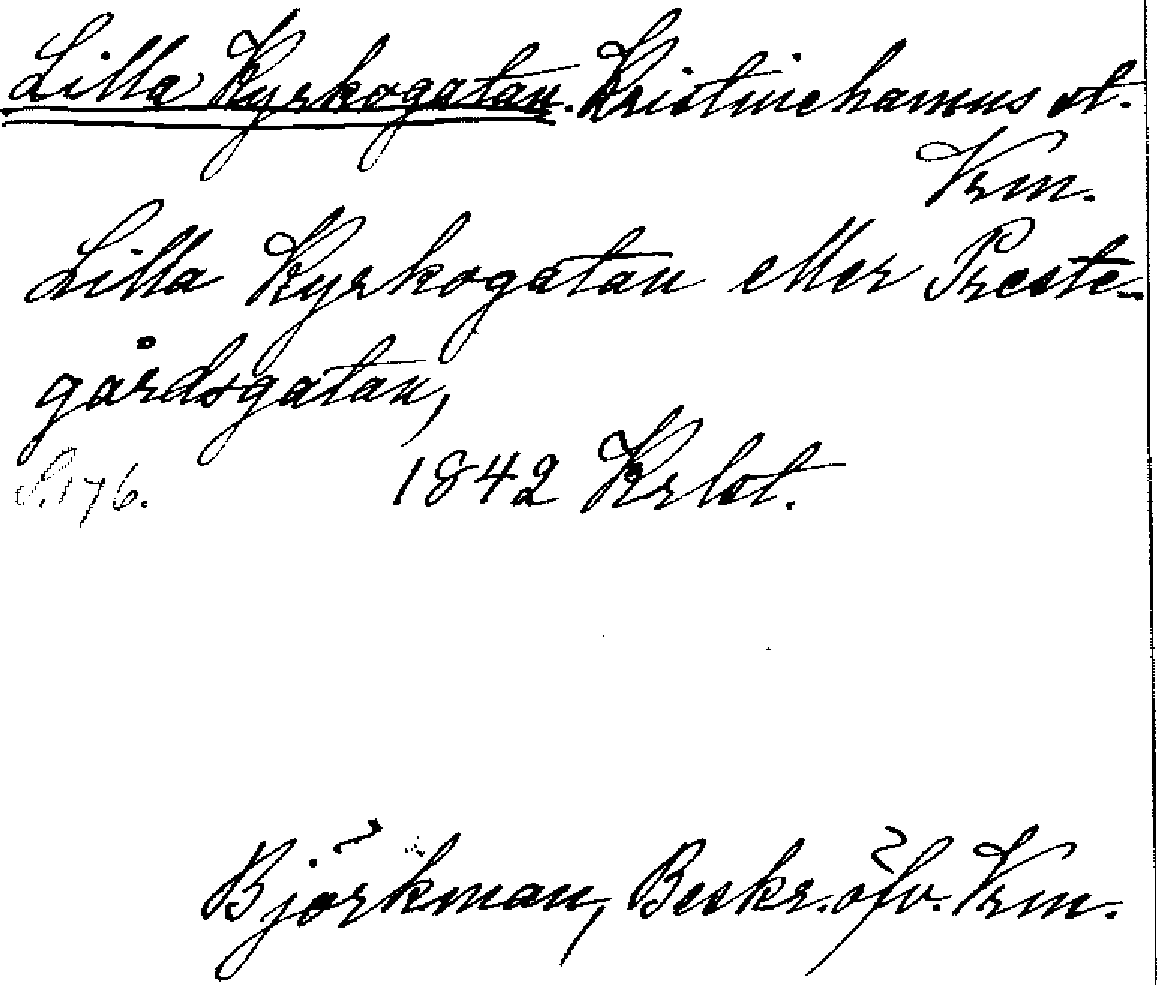 Lilla Kyrkogatan. Kristinehamns st.
Vrm.
Lilla Kyrkogatan eller Preste-
gårdsgatan,
S. 176. 1842 Krlst.
Björkman, Beskr. öfv. Vrm.